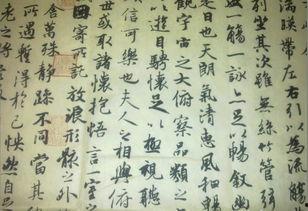 湍暎帶左右引以為流觴
列坐其次雖無絲竹管弦
盛一觴一詠亦足以暢敘幽
是日也天朗氣清惠風和暢
觀宇宙之大俯察品類之
以遊目騁懷足以極視聽
信可樂也夫人之相與俯
世或取諸懷抱悟言一室之
因寄所託放浪形骸之外
舍萬殊靜躁不同當其
所遇蹔得於己怏然自
老之將